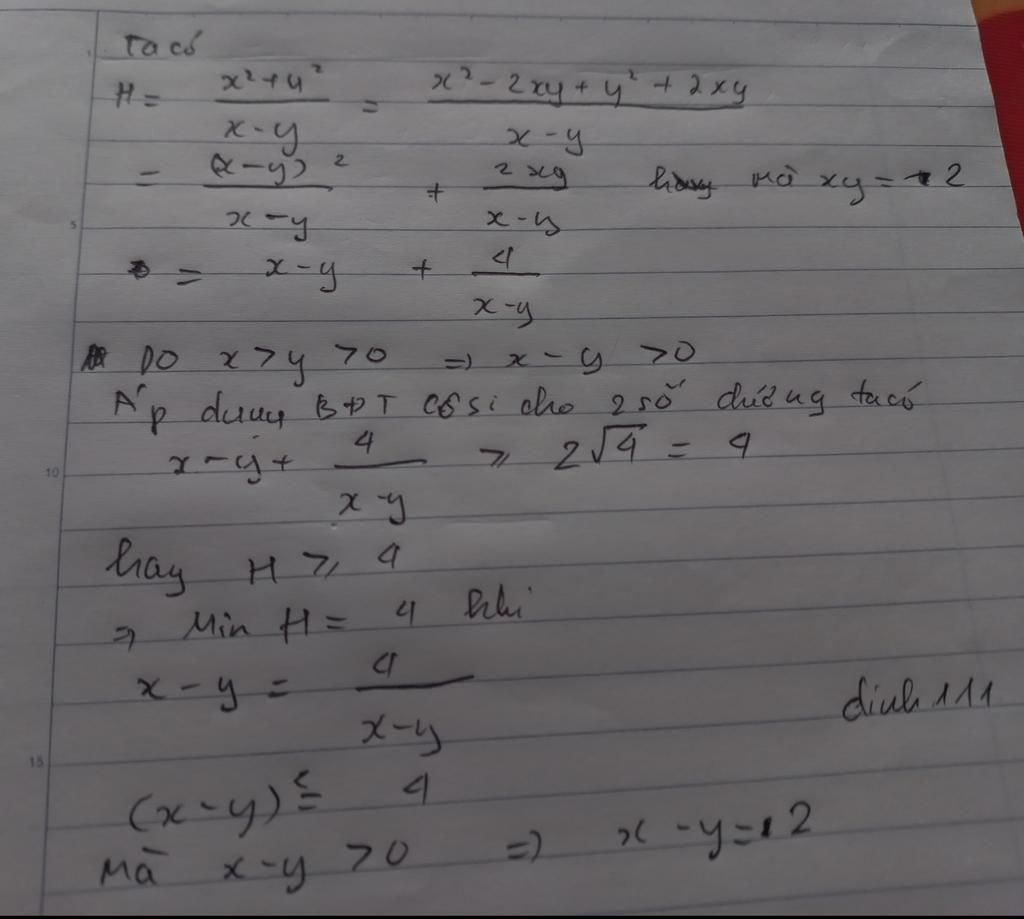 Ta có
H = (x² + y²)/(x - y) = (x² - 2xy + y² + 2xy)/(x - y)
= (x - y)²/(x - y) + 2xy/(x - y) mà xy = 2
= x - y + 4/(x - y)
Do x > y > 0 => x - y > 0
Áp dụng BĐT Cô si cho 2 số dương ta có
x - y + 4/(x - y) ≥ 2√4 = 4
hay H ≥ 4
=> Min H = 4 khi
x - y = 4/(x - y)
dinh 111
(x - y)² = 4
Mà x - y > 0 => x - y = 2